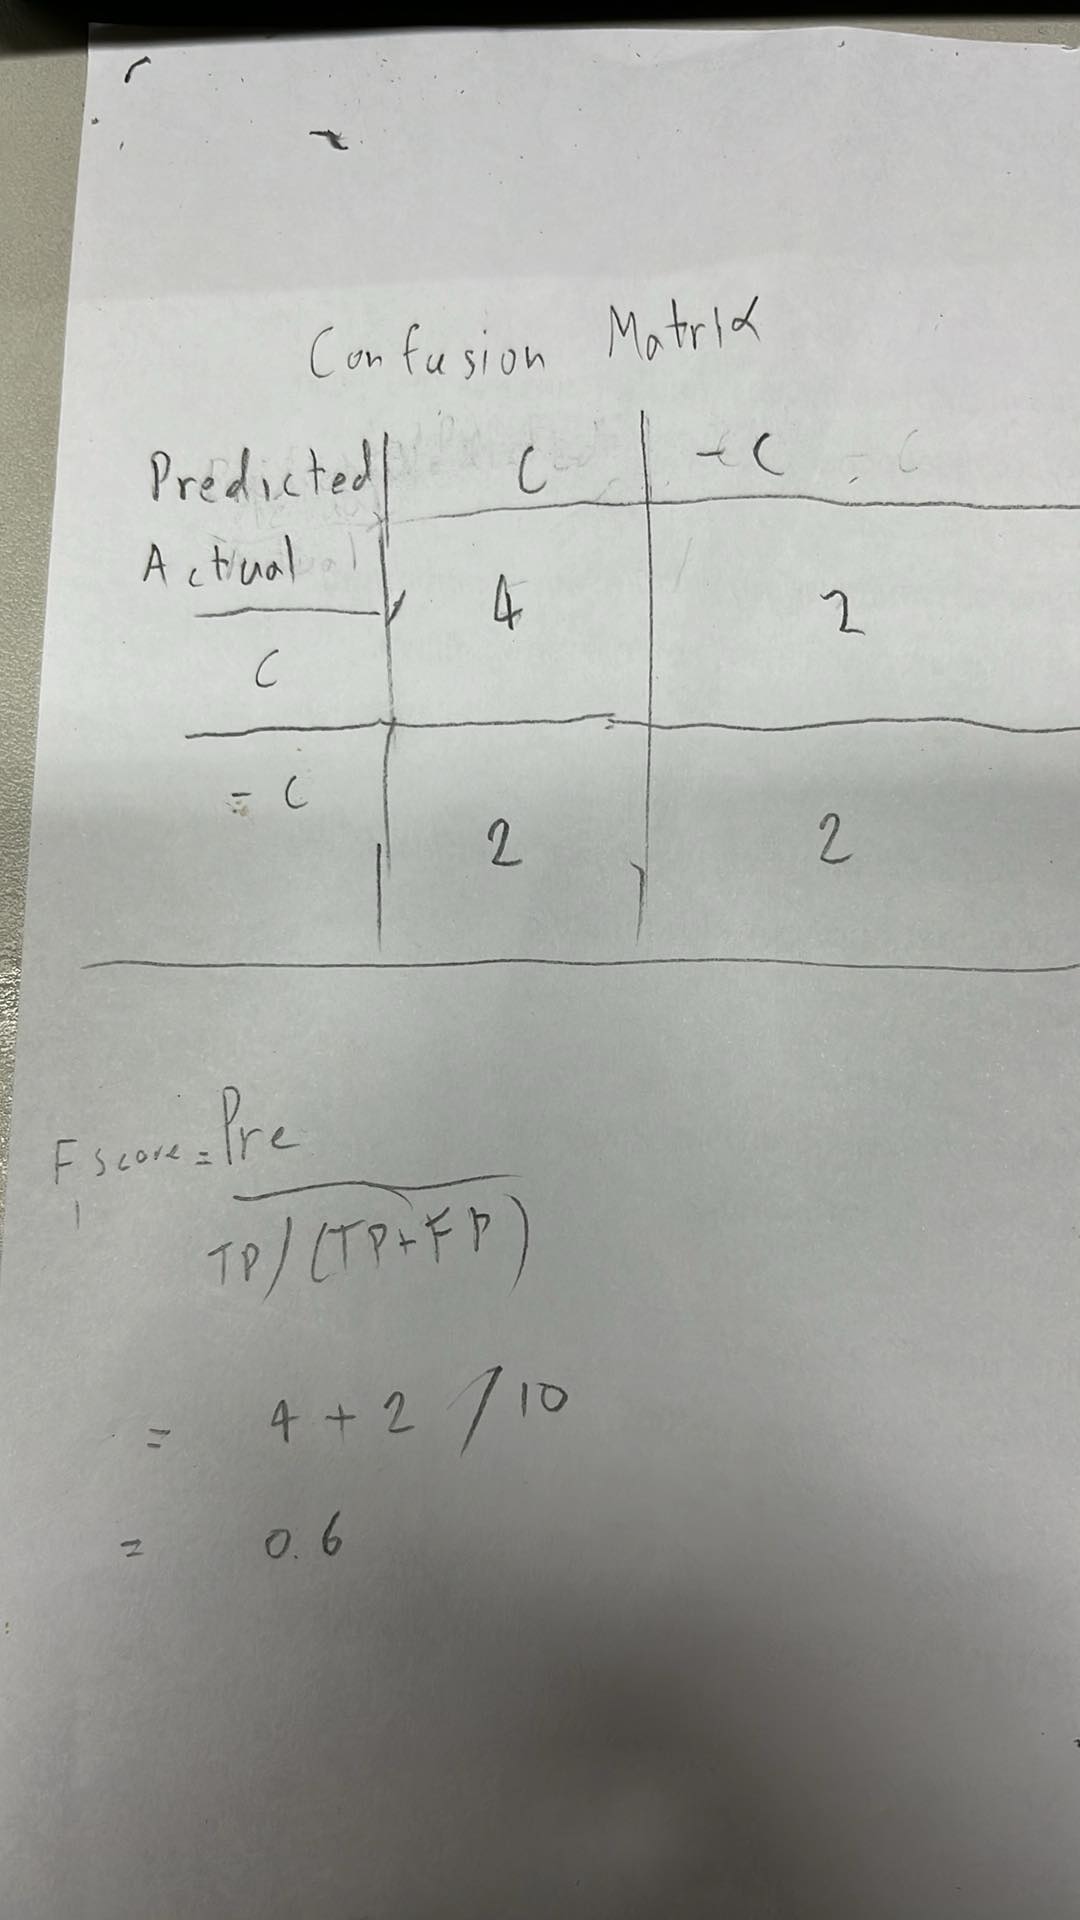 Confusion Matrix
Predicted C ¬C
Actual 4 2
C
¬C 2 2
F1 score = Pre
TP/(TP+FP)
= 4+2/10
= 0.6